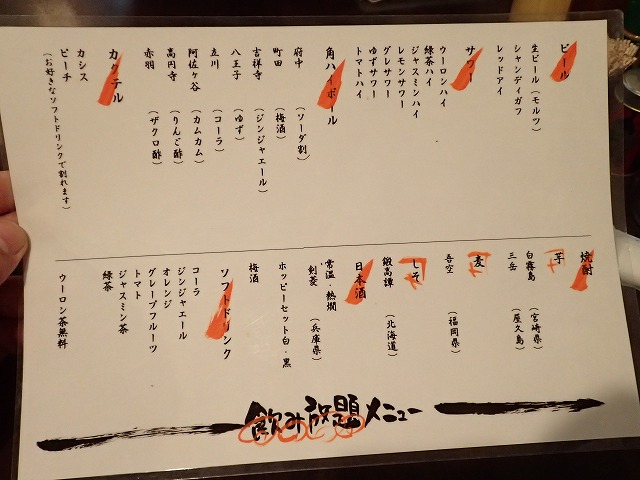 ビール
生ビール（モルツ）
シャンディガフ
レッドアイ
サワー
ウーロンハイ
緑茶ハイ
ジャスミンハイ
レモンサワー
グレサワー
ゆずサワー
トマトハイ
角ハイボール
府中（ソーダ割）
町田（梅酒）
吉祥寺（ジンジャエール）
八王子（ゆず）
立川（コーラ）
阿佐ヶ谷（カムカム）
高円寺（りんご酢）
赤羽（ザクロ酢）
カクテル
カシス
ピーチ
（お好きなソフトドリンクで割れます）
焼酎
芋
白霧島（宮崎県）
三岳（屋久島）
麦
吾空（福岡県）
しそ
鍛高譚（北海道）
日本酒
常温・熱燗
剣菱（兵庫県）
ホッピーセット白・黒
梅酒
ソフトドリンク
コーラ
ジンジャエール
オレンジ
グレープフルーツ
トマト
ジャスミン茶
緑茶
ウーロン茶無料
飲み放題メニュー